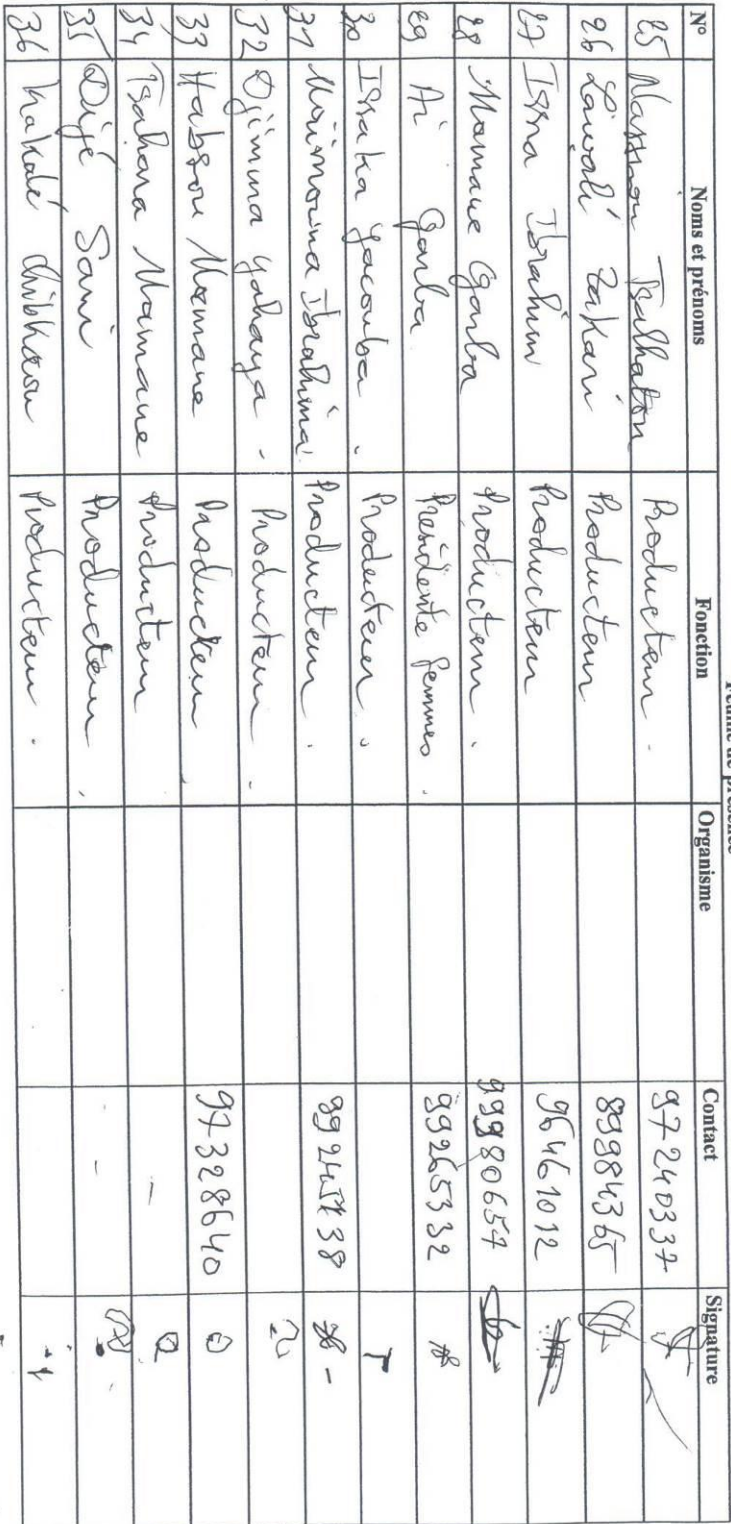 Feuille de présence
N° Noms et prénoms Fonction Organisme Contact Signature
25 Tsalhatou Producteur. 97240337
26 Lawali Zakari Producteur 89984365
27 Issa Ibrahim Producteur 96461012
28 Mamane Garba Producteur. 99980657
29 Ai Garba Presidente femmes. 99265332
30 Issaka Yacouba. Producteur.
31 Maimouna Ibrahima. Producteur.
32 Djimma Yahaya. Producteur.
33 Habsou Mamane Producteur 97328640
34 Tsahara Mamane Producteur
35 Dijé Sami Producteur.
36 Kakalé Producteur.